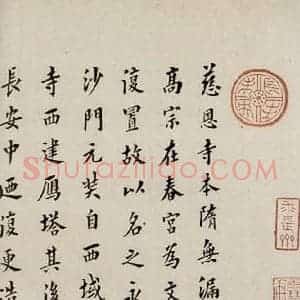 慈恩寺本隋無漏
髙宗在春宮為文
復置故以名之永
沙門元奘自西域
寺西建鴈塔其後
長安中廼復更造
Shufaziliao.com